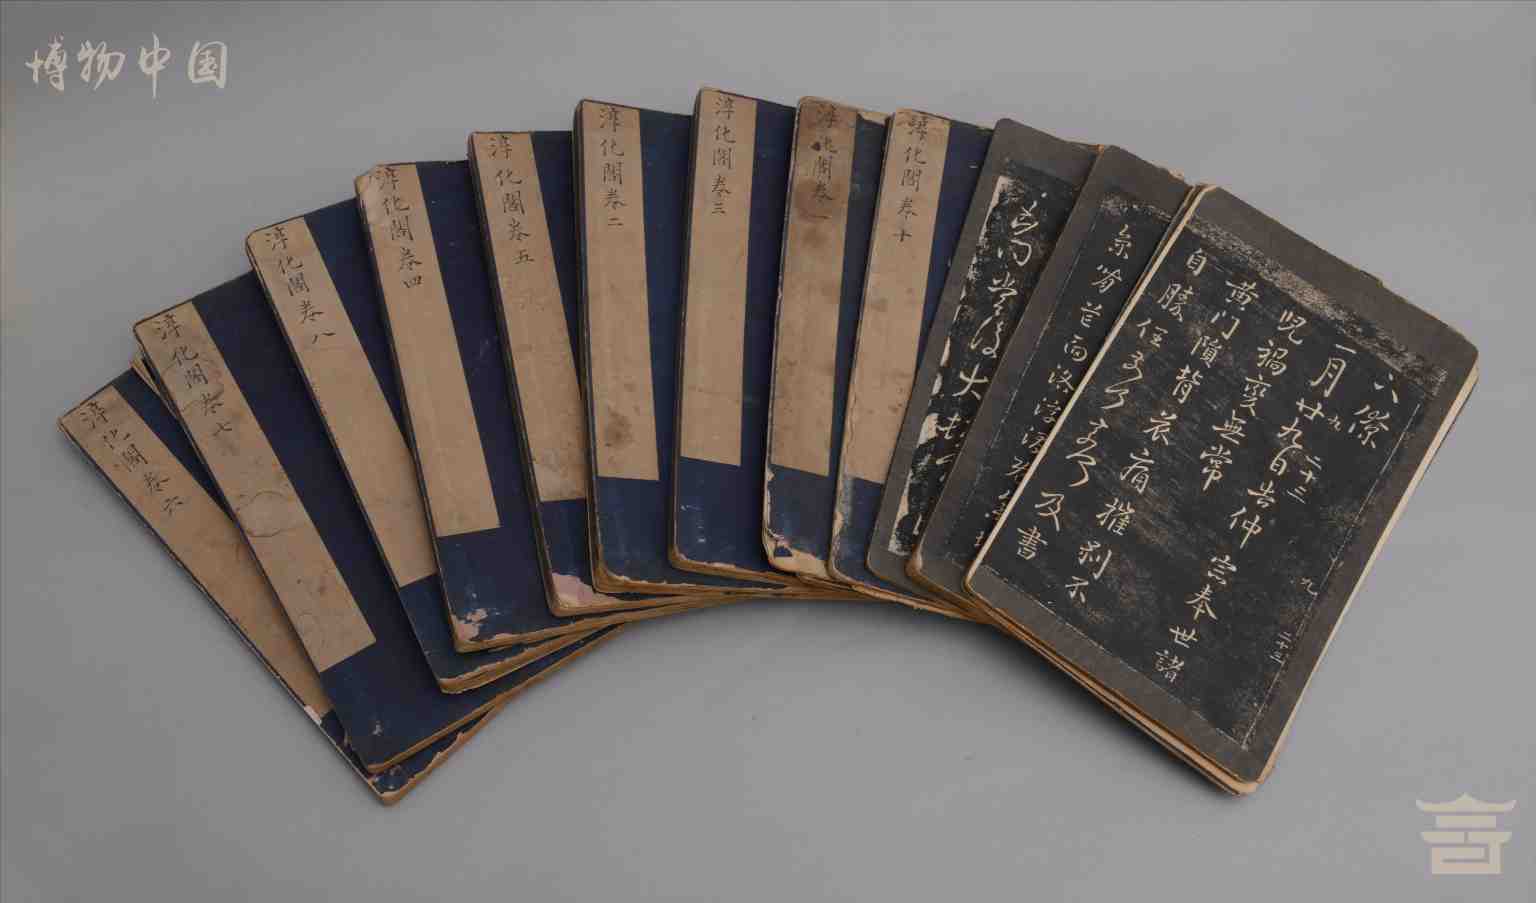 博物中国
淳化閣卷六
淳化閣卷七
淳化閣卷八
淳化閣卷四
淳化閣卷五
淳化閣卷二
淳化閣卷三
淳化閣卷一
淳化閣卷十
九
二十三
一月廿九日告仲宗奉世諸
兒禍變無常
黄门隕背哀痛摧剥不
自勝任奈何奈何及書
九
二十三